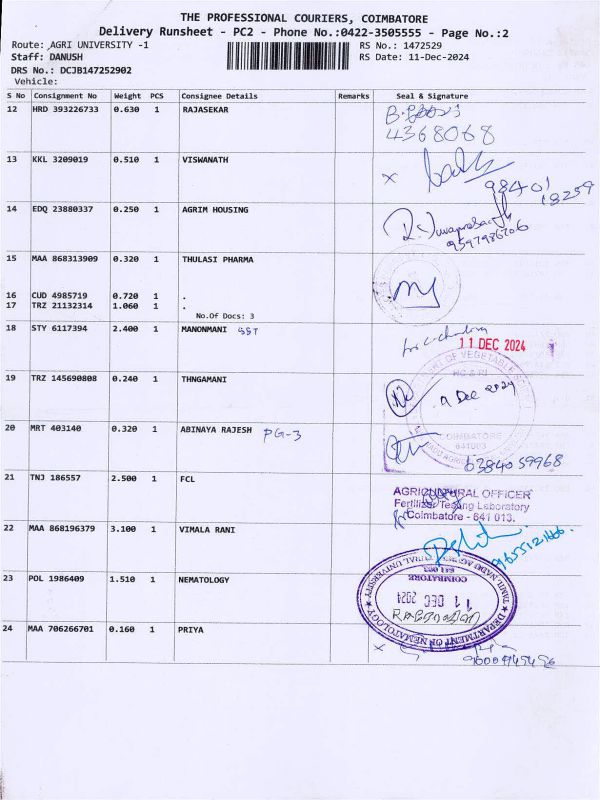 THE PROFESSIONAL COURIERS, COIMBATORE
Delivery Runsheet - PC2 - Phone No.:0422-3505555 - Page No.:2
Route: AGRI UNIVERSITY -1 RS No.: 1472529
Staff: DANUSH RS Date: 11-Dec-2024
DRS No.: DCJB147252902
Vehicle:
S No Consignment No Weight PCS Consignee Details Remarks Seal & Signature
12 HRD 393226733 0.630 1 RAJASEKAR
4368068
13 KKL 3209019 0.510 1 VISWANATH
x
98401
18259
14 EDQ 23880337 0.250 1 AGRIM HOUSING
9597986206
15 MAA 868313909 0.320 1 THULASI PHARMA
16 CUD 4985719 0.720 1 .
17 TRZ 21132314 1.060 1 .
No.Of Docs: 3
18 STY 6117394 2.400 1 MANONMANI SST
11 DEC 2024
19 TRZ 145690808 0.240 1 THNGAMANI
HC & RI
Dec 2024
20 MRT 403140 0.320 1 ABINAYA RAJESH PG-3
COIMBATORE
641003
6384059968
21 TNJ 186557 2.500 1 FCL
AGRICULTURAL OFFICER
Fertilizer Testing Laboratory
Coimbatore - 641 013.
22 MAA 868196379 3.100 1 VIMALA RANI
23 POL 1986409 1.510 1 NEMATOLOGY
TAMIL NADU AGRICULTURAL UNIVERSITY
641 003
COIMBATORE
11 DEC 2024
DEPARTMENT OF NEMATOLOGY
24 MAA 706266701 0.160 1 PRIYA
x